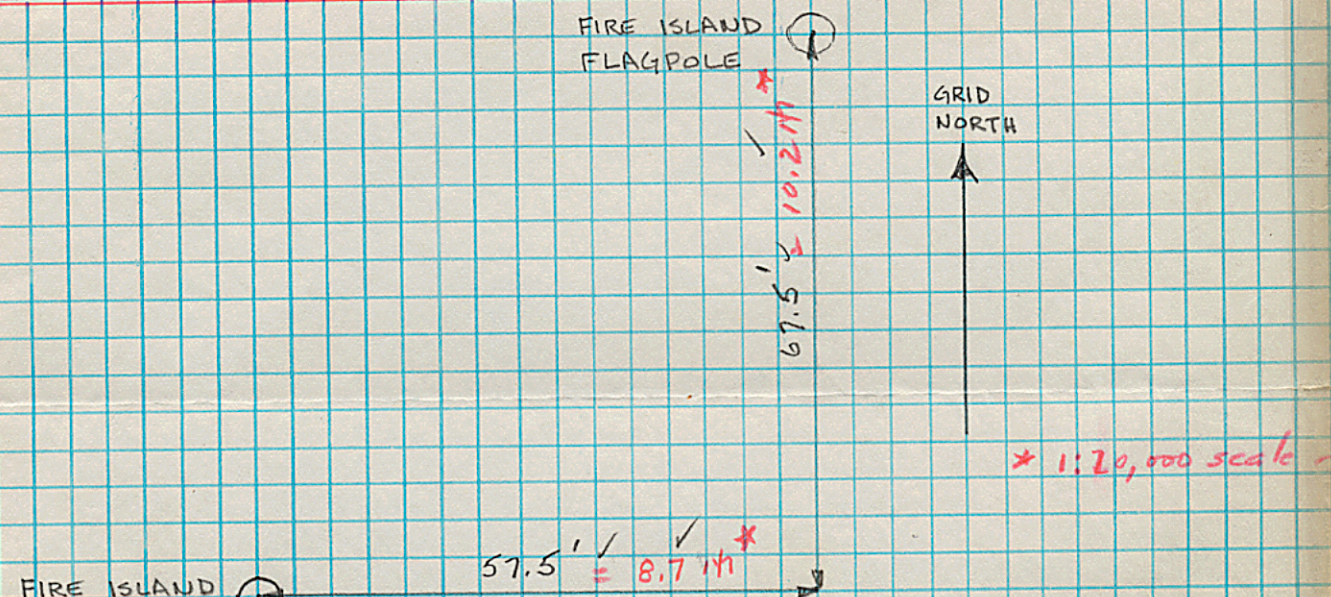 FIRE ISLAND
FLAGPOLE
GRID
NORTH
67.5' = 10.2 *
* 1:20,000 scale
57.5' = 8.7 *
FIRE ISLAND